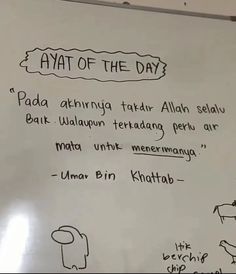 AYAT OF THE DAY
"Pada akhirnya takdir Allah selalu
Baik. Walaupun terkadang perlu air
mata untuk menerimanya."
- Umar Bin Khattab -
Itik
berchip
chip